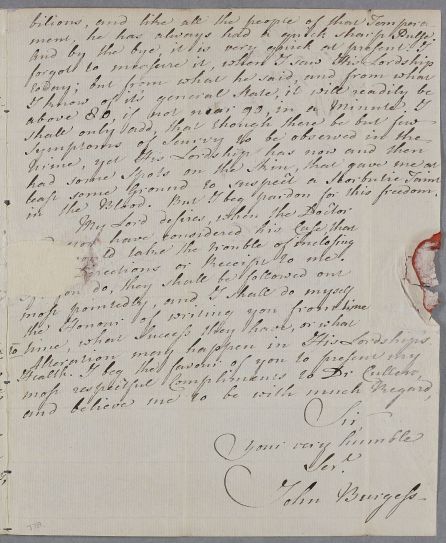 bilious, and like all the people of that Tempera
ment, he has always had a quick Sharp Pulse,
and by the bye, it is very quick at present. I
forgot to measure it, when I saw His Lordship
today; but from what he said, and from what
I know of its general State, it will readily be
above 80, if not near 90, in a Minute. I
shall only add, that though there be but few
Symptoms of Scurvy to be observed in the
Urine, yet His Lordship has now and then
had some Spots on the Skin, that gave me at
least some Ground to suspect a Scorbutic Taint
in the Blood. But I beg pardon for this freedom.
My Lord desires, when the Doctor
have considered his Case that
take the trouble of inclosing
Directions or Receipt to me.
do, they shall be followed out
most pointedly, and I shall do myself
the Honour of writing you from time
to time, what Success they have, or what
Alteration may happen in His Lordships
Health. I beg the favour of you to present my
most respectful Compliments to Dr Cullen,
and believe me to be with much Regard,
Sir,
your very humble
Sert.
John Burgess